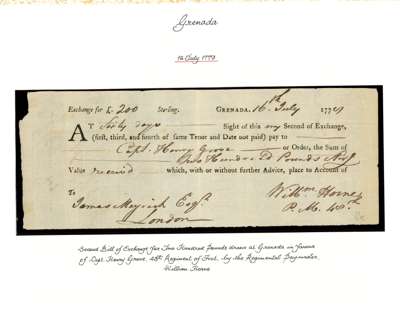 Grenada
16 July 1779
Exchange for £ 200 Sterling. GRENADA. 16th July 1779
AT Sixty days Sight of this my Second of Exchange,
(first, third, and fourth of same Tenor and Date not paid) pay to
Capt. Henry Grove or Order, the Sum of
Two Hundred Pounds
Value received which, with or without further Advice, place to Account of
To
James Meyrick Esqr.
London
Willm Horne
P.M. 48th
Second Bill of Exchange for Two Hundred Pounds drawn at Grenada in favour
of Capt. Henry Grove, 48th Regiment of Foot, by the Regimental Paymaster,
William Horne